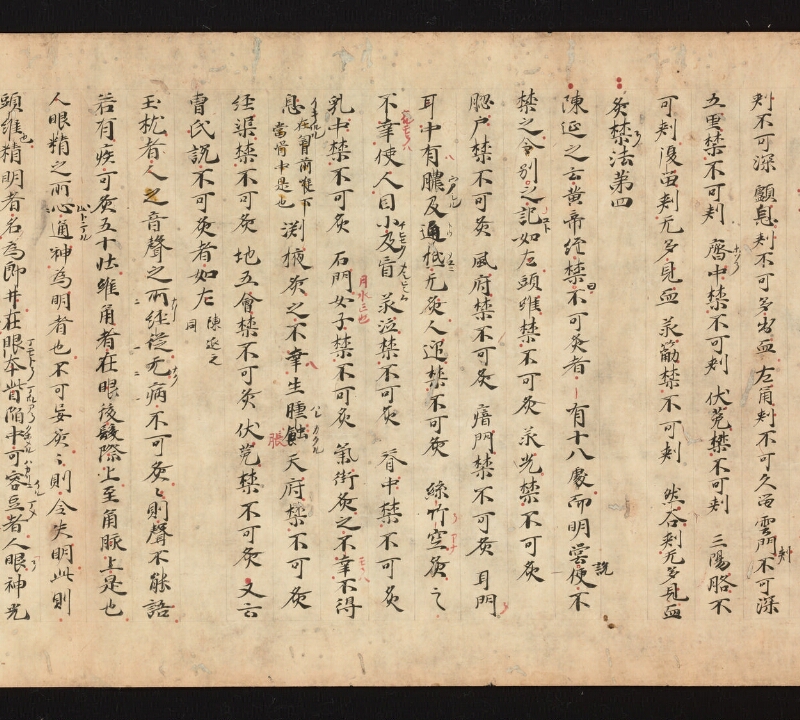 刾不可深 顖息刾不可多出血 左角刾不可久留 雲門刾不可深
五里禁不可刾 齊中禁不可刾 伏菟禁不可刾 三陽胳不
可刾 復留刾无多見血 承筋禁不可刾 然谷刾无多見血
灸禁法第四
陳延之云黄帝経禁不可灸者有十八處而明堂便不
禁之今別々記如左 頭維禁不可灸 承光禁不可灸
腦戸禁不可灸 風府禁不可灸 瘖門禁不可灸 耳門
耳中有膿及通柢无灸人迎禁不可灸 絲竹空灸之
不幸使人目小及盲 承泣禁不可灸 脊中禁不可灸
乳中禁不可灸 石門女子禁不可灸 氣街灸之不幸不得
息 渕掖灸之不幸生腫蝕 天府禁不可灸
経渠禁不可灸 地五會禁不可灸 伏菟禁不可灸 又云
曹氏説不可灸者如左 陳延之同
玉枕者人之音聲之所経從无病不可灸々則聲不能語
若有疾可灸五十壮 維角者在眼後髮際上至角脉上是也
人眼精之所心通神為明者也不可妄灸々則令失明 此則
頭維也 精明者名為即井在眼本眥陥中可容豆者人眼神光